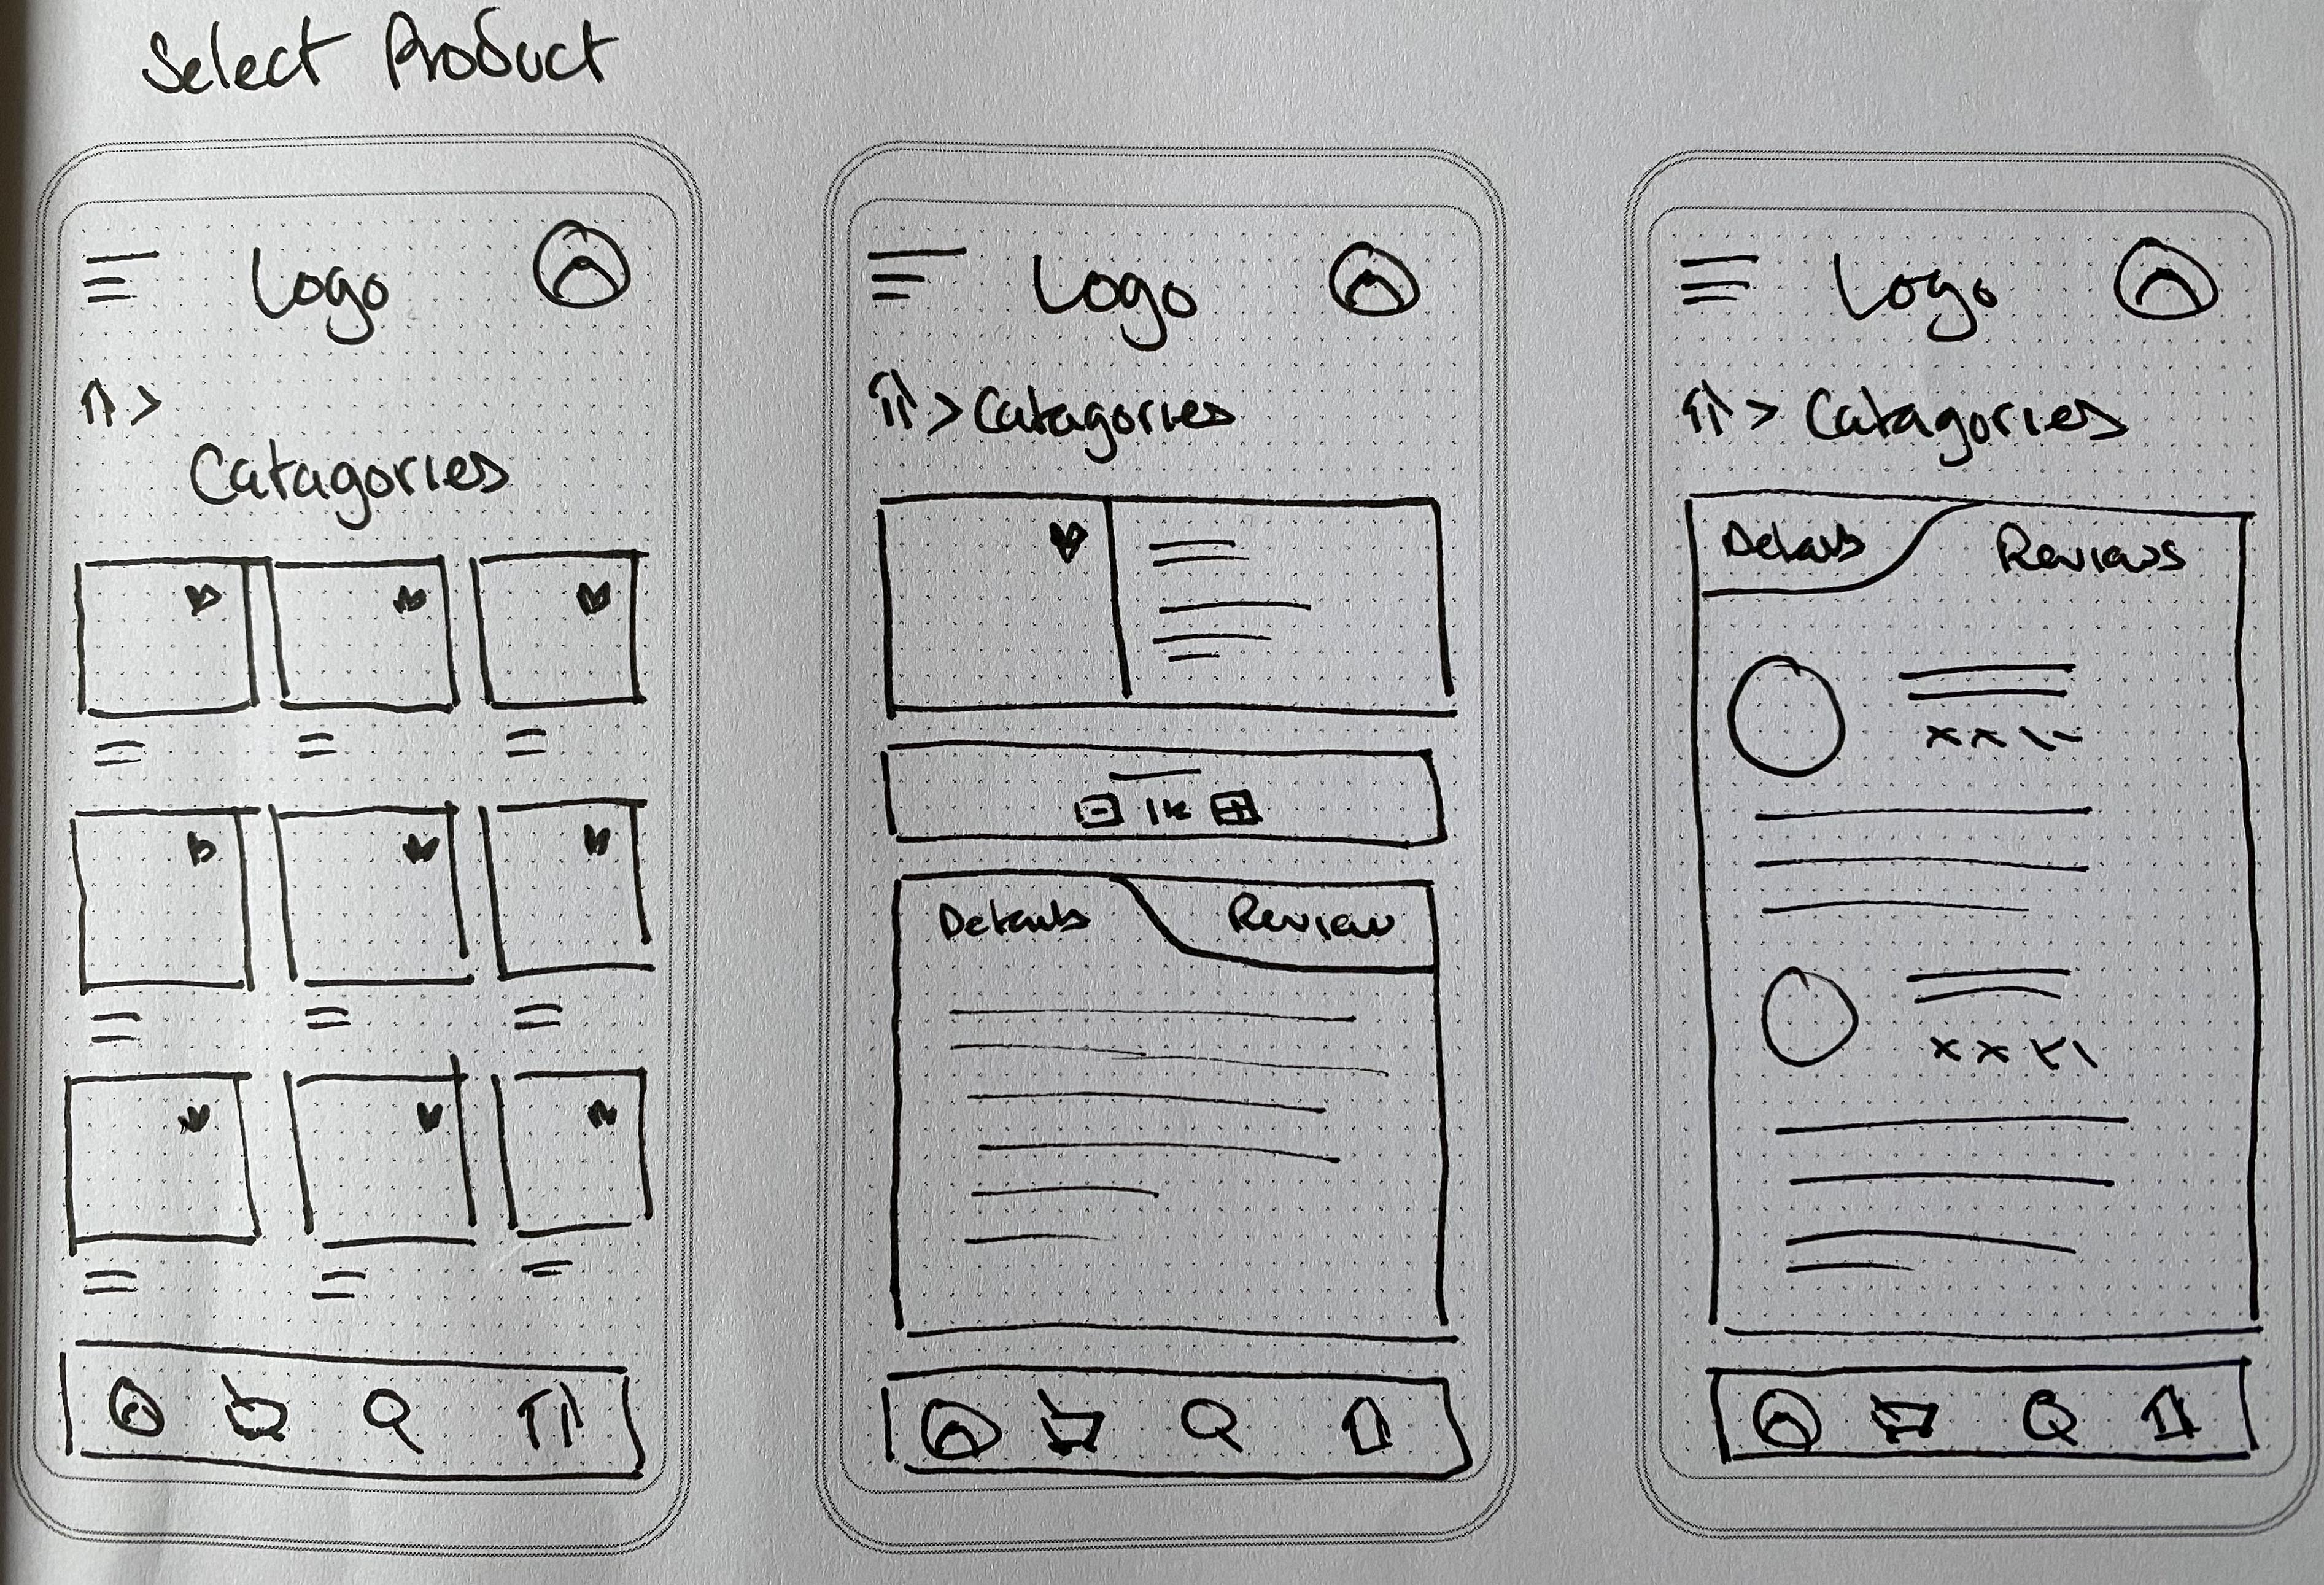 Select Product
Logo
>
Catagories
Logo
> Catagories
- 1k +
Details Review
Logo
> Catagories
Details Reviews